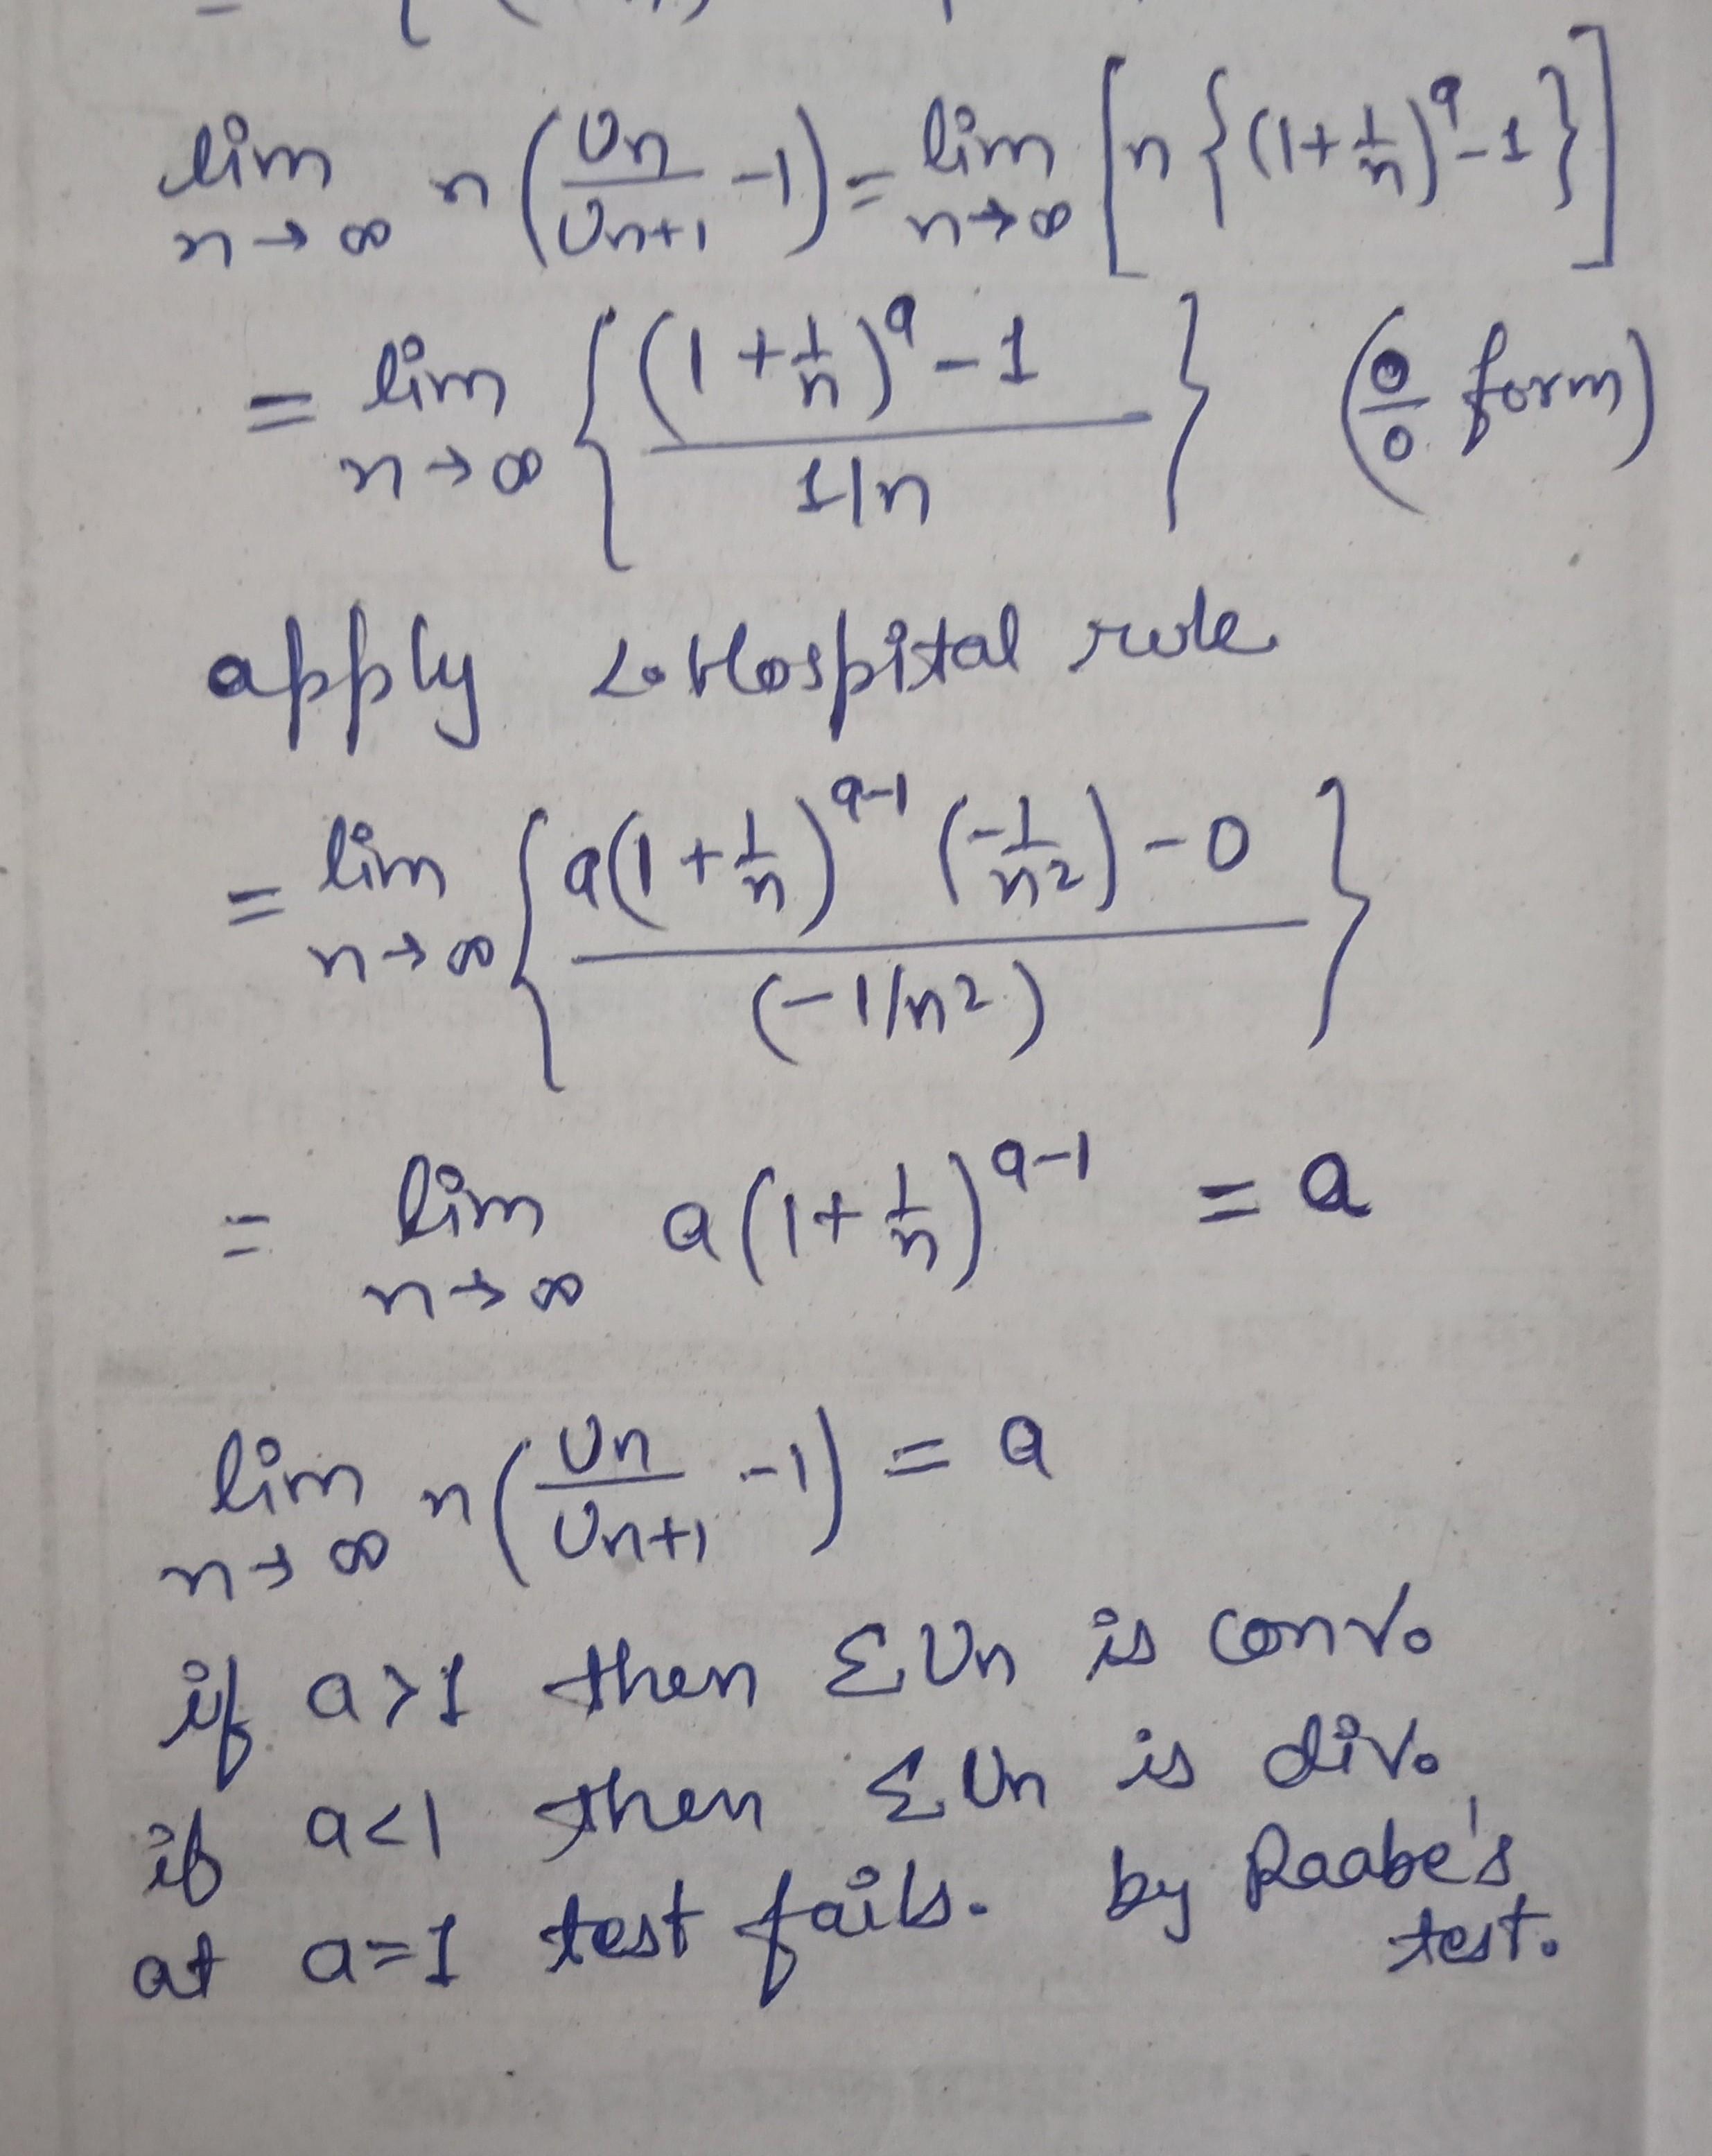 lim n→∞ n(Un/Un+1 -1) = lim n→∞ [n{(1+1/n)^a-1}]
= lim n→∞ {(1+1/n)^a-1 / 1/n} (0/0 form)
apply L.Hospital rule
= lim n→∞ {a(1+1/n)^a-1 (-1/n²)-0 / (-1/n²)}
= lim n→∞ a(1+1/n)^a-1 = a
lim n→∞ n(Un/Un+1 -1) = a
if a>1 then ΣUn is conv.
if a<1 then ΣUn is div.
at a=1 test fails. by Raabe's
test.